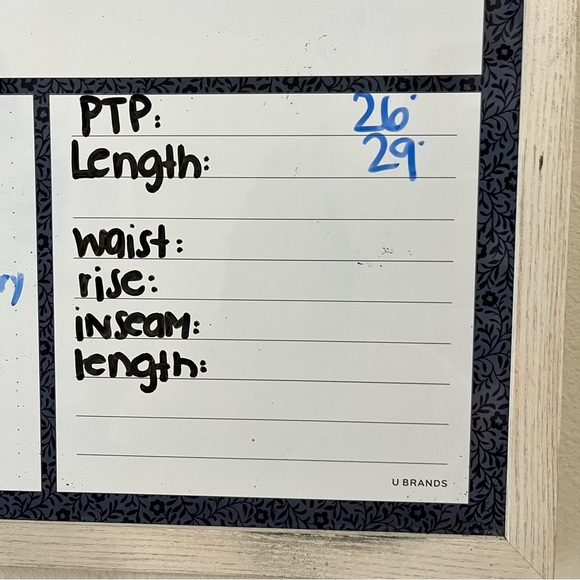 PTP: 26"
Length: 29"
waist:
rise:
inseam:
length:
ry
U BRANDS